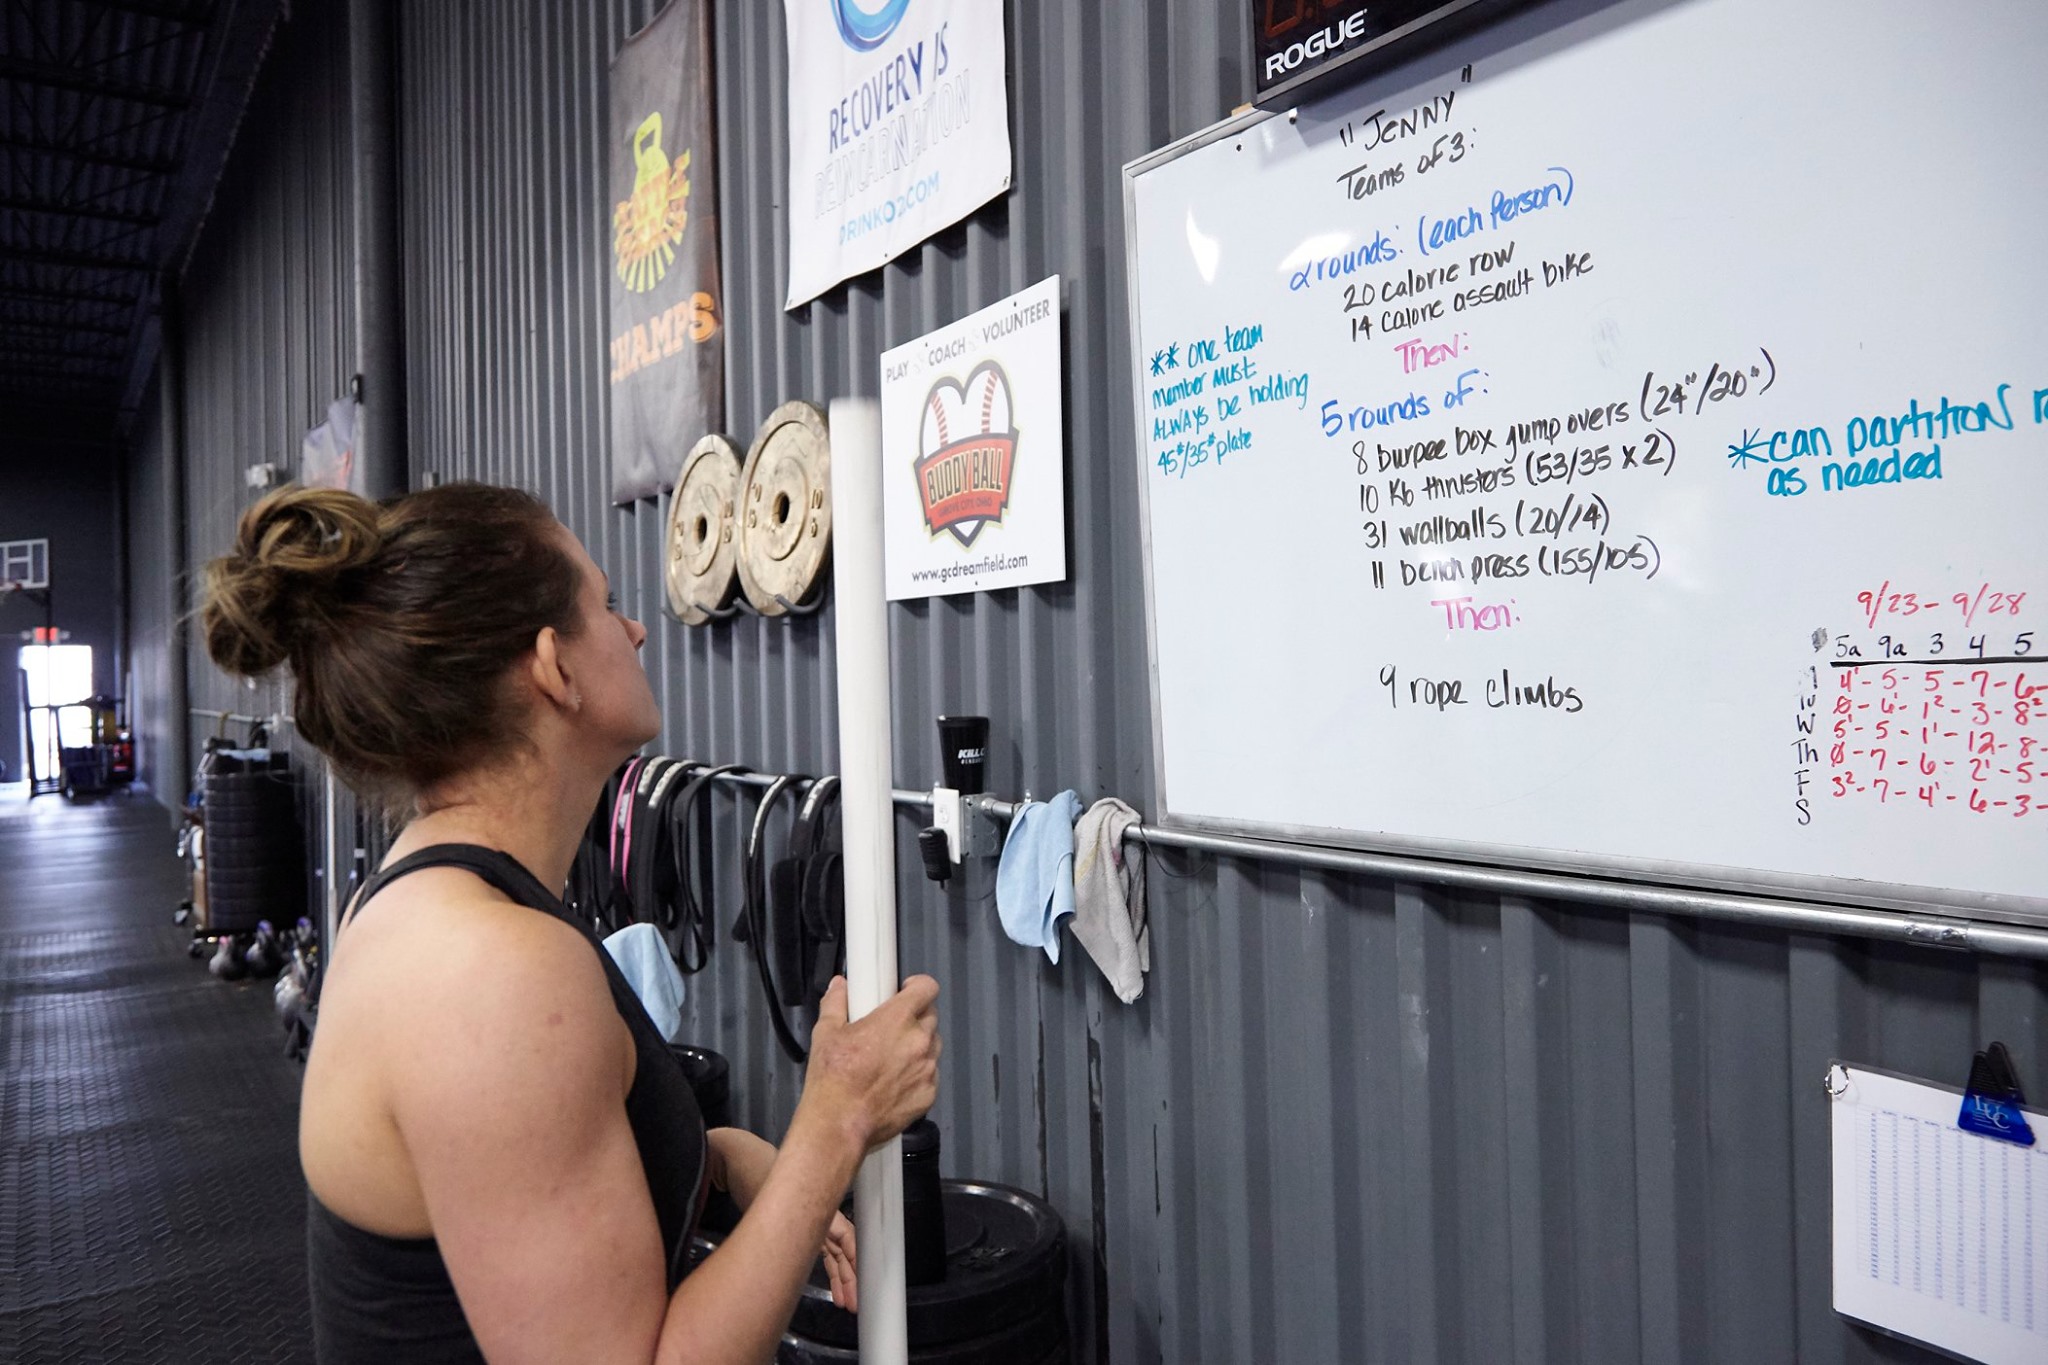 RECOVERY IS
REINCARNATION
DRINKO2.COM
CHAMPS
PLAY COACH VOLUNTEER
BUDDY BALL
GROVE CITY, OHIO
www.gcdreamfield.com
KILL
ROGUE
"JENNY"
Teams of 3:
2 rounds: (each Person)
20 calorie row
14 calorie assault bike
Then:
5 rounds of:
8 burpee box jump overs (24"/20")
10 Kb thrusters (53/35 x 2)
31 wallballs (20/14)
11 bench press (155/105)
Then:
9 rope climbs
** one team
member must
ALWAYS be holding
45#/35# plate
*can partition
as needed
9/23 - 9/28
5a 9a 3 4 5
4' - 5 - 5 - 7 - 6 -
W
Th
F
S
LUC